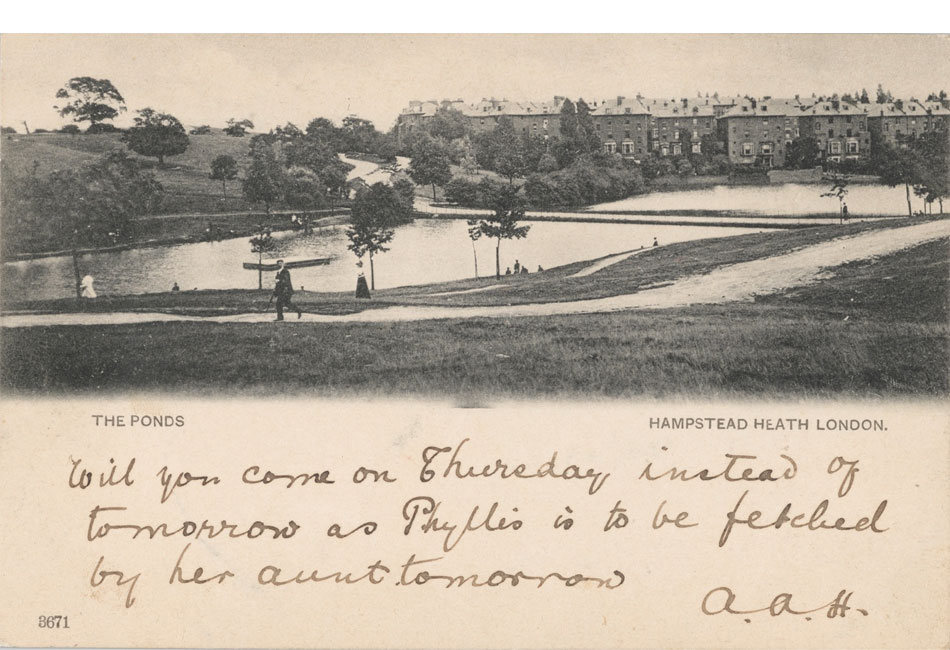 THE PONDS
HAMPSTEAD HEATH LONDON.
Will you come on Thursday instead of
tomorrow as Phyllis is to be fetched
by her aunt tomorrow
A.A.H.
3671